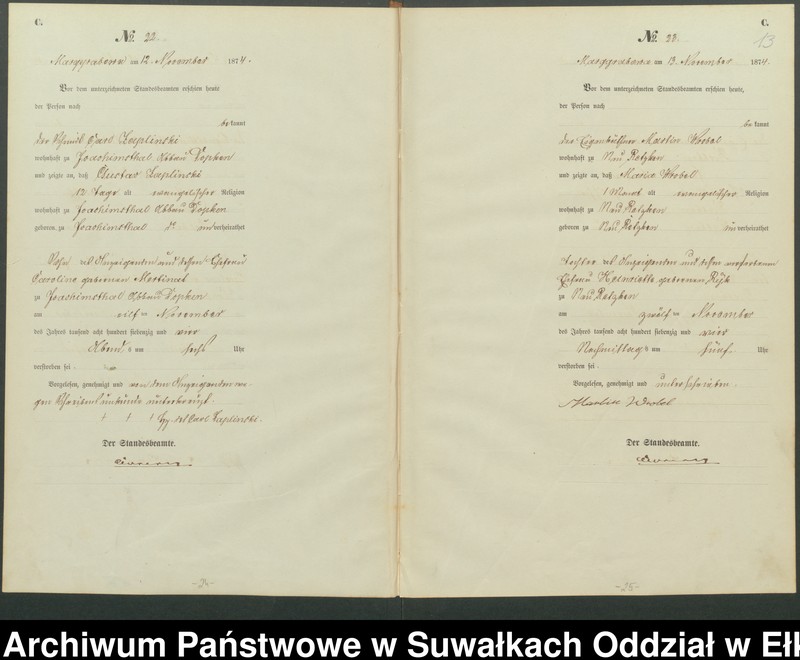 C.
№ 22.
Marggrabowa am 12 November 1874.
Vor dem unterzeichneten Standesbeamten erschien heute
der Person nach
be kannt
der Carl Czaplinski
wohnhaft zu Joachimsthal Abbau Dopken
und zeigte an, daß Gustav Czaplinski
12 Tage alt evangelischer Religion
wohnhaft zu Joachimsthal Abbau Dopken
geboren zu Joachimsthal unverheirathet
Sohn des Anzeigenden und dessen Ehefrau
Caroline geborenen
zu Joachimsthal Abbau Dopken
am eilf ten November
des Jahres tausend acht hundert siebenzig und vier
Abends um sechs Uhr
verstorben sei.
Vorgelesen, genehmigt und von dem Anzeigenden we-
gen Schreibensunkunde unterkreuzt.
+ + + des Carl Czaplinski.
Der Standesbeamte.
-24-
C.
13
№ 23.
Marggrabowa am 13 November 1874.
Vor dem unterzeichneten Standesbeamten erschien heute,
der Person nach
be kannt
der Eigenkäthner Martin Wrobel
wohnhaft zu Neu Retzken
und zeigte an, daß Marie Wrobel
1 Monat alt evangelischer Religion
wohnhaft zu Neu Retzken
geboren zu Neu Retzken unverheirathet
Tochter des Anzeigenden und dessen verstorbenen
Ehefrau Henriette geborenen
zu Neu Retzken
am zwölf ten November
des Jahres tausend acht hundert siebenzig und vier
Nachmittags um fünf Uhr
verstorben sei.
Vorgelesen, genehmigt und unterschrieben.
Martin Wrobel
Der Standesbeamte.
-25-
Archiwum Państwowe w Suwałkach Oddział w Ełk